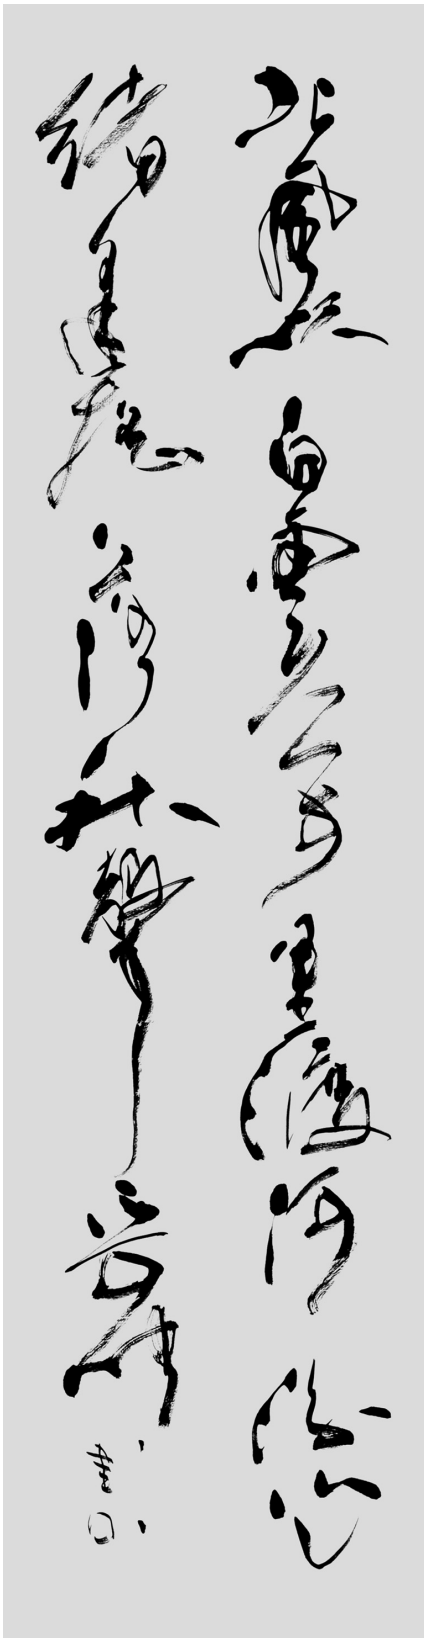 北風吹白雲萬里渡河汾心
緒逢搖落秋聲不可聞